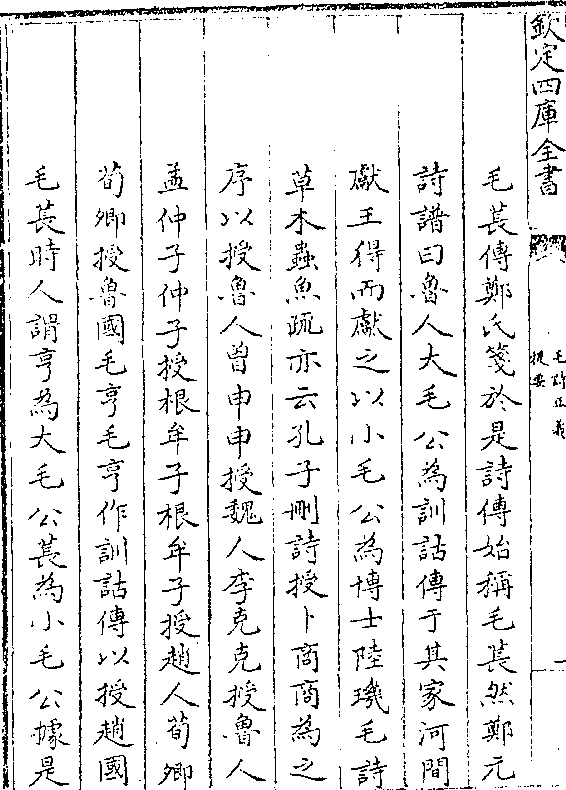 欽定四庫全書
毛詩正義
提要
一
毛萇傳鄭氏箋於是詩傳始稱毛萇然鄭元
詩譜曰魯人大毛公為訓詁傳于其家河間
獻王得而獻之以小毛公為博士陸璣毛詩
草木蟲魚疏亦云孔子刪詩授卜商商為之
序以授魯人曾申申授魏人李克克授魯人
孟仲子仲子授根牟子根牟子授趙人荀卿
荀卿授魯國毛亨毛亨作訓詁傳以授趙國
毛萇時人謂亨為大毛公萇為小毛公據是